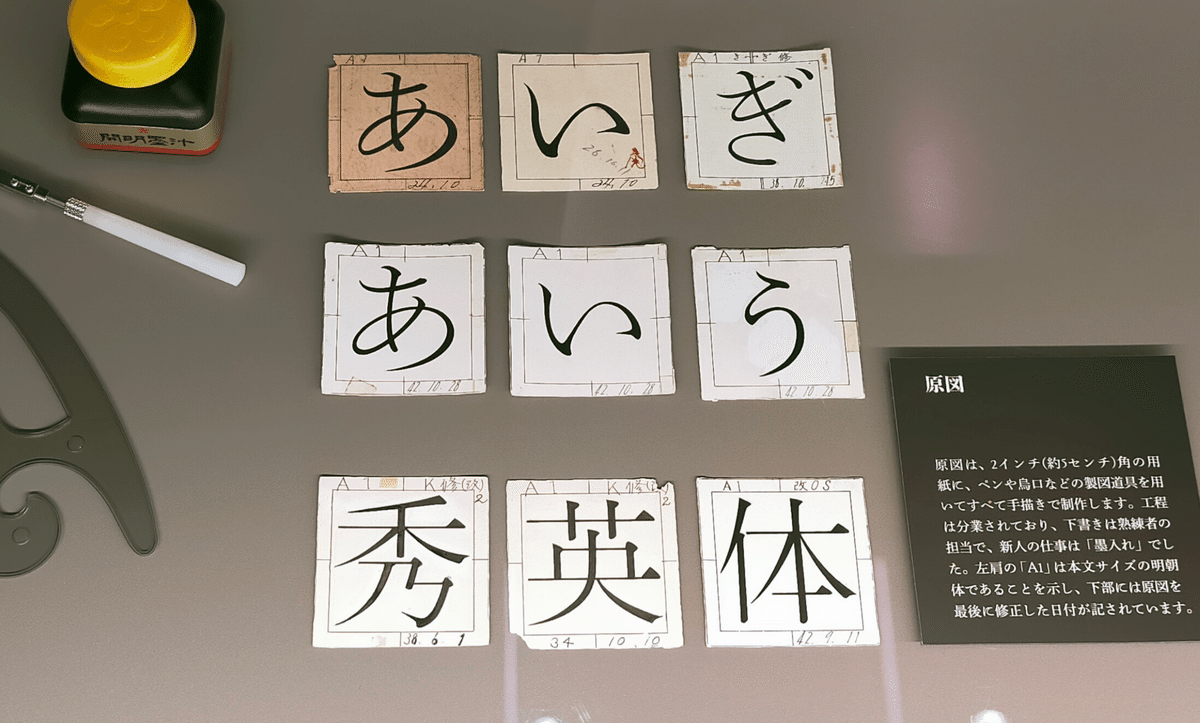 開明墨汁
A1
あ
24.10
A1
い
24.10
A1
ぎ
38. 10.
A1
あ
42. 10. 28
A1
い
42. 10. 28
A1
う
42. 10. 28
A1 K修(改)
2
秀
38. 6. 1
A1 K修
2
英
34 10. 10
A1 改OS
体
42. 9. 11
原図
原図は、2インチ(約5センチ)角の用
紙に、ペンや烏口などの製図道具を用
いてすべて手描きで制作します。工程
は分業されており、下書きは熟練者の
担当で、新人の仕事は「墨入れ」でし
た。左肩の「A1」は本文サイズの明朝
体であることを示し、下部には原図を
最後に修正した日付が記されています。